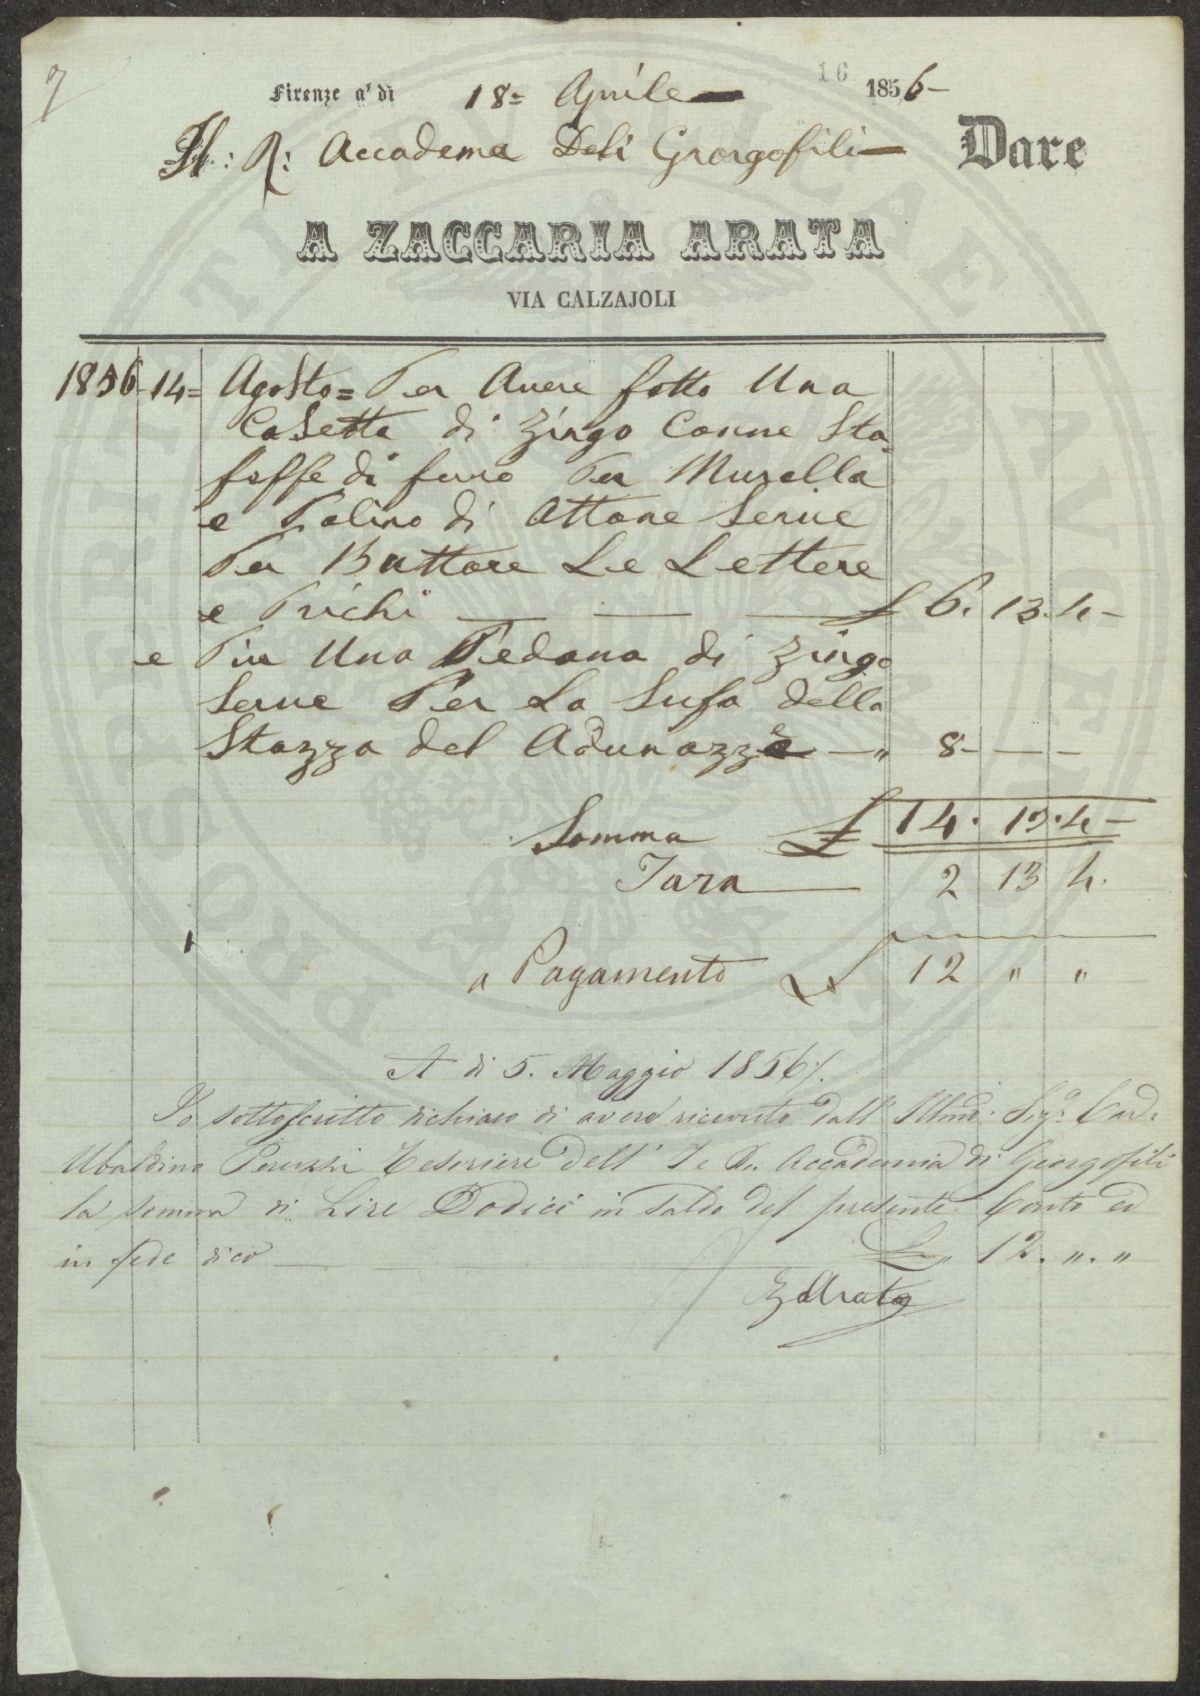 7
16
Firenze a' dì 18= Aprile 1856-
I: R: Accadema Deli Grorgofili Dare
A ZACCARIA ARATA
VIA CALZAJOLI
1856-14= Agosto= Per Avere fatto Una
Casetta di Zingo Conne Sta
faffe di ferro Per Murella
e Polino di Attone Serve
Per Buttare Le Lettere
e Prichi £ 6. 13. 4-
e Piu Una Pedana di Zingo
Serve Per La Sufa della
Stazza del Adunazze " 8 - - -
Somma £ 14. 13. 4-
Tara 2 13 4.
a Pagamento £ 12 " "
A di 5. Maggio 1856/.
Io sottoscritto dichiaro di avere ricevuto dall' Illmo: Sigr. Cav.
Ubaldino Peruzzi Tesoriere dell' I. e R. Accademia di Georgofili
la somma di Lire Dodici in Saldo del presente Conto ed
in fede dico L. 12. ". "
Z Arata
PROSPERITATI PUBLICAE AUGENDAE